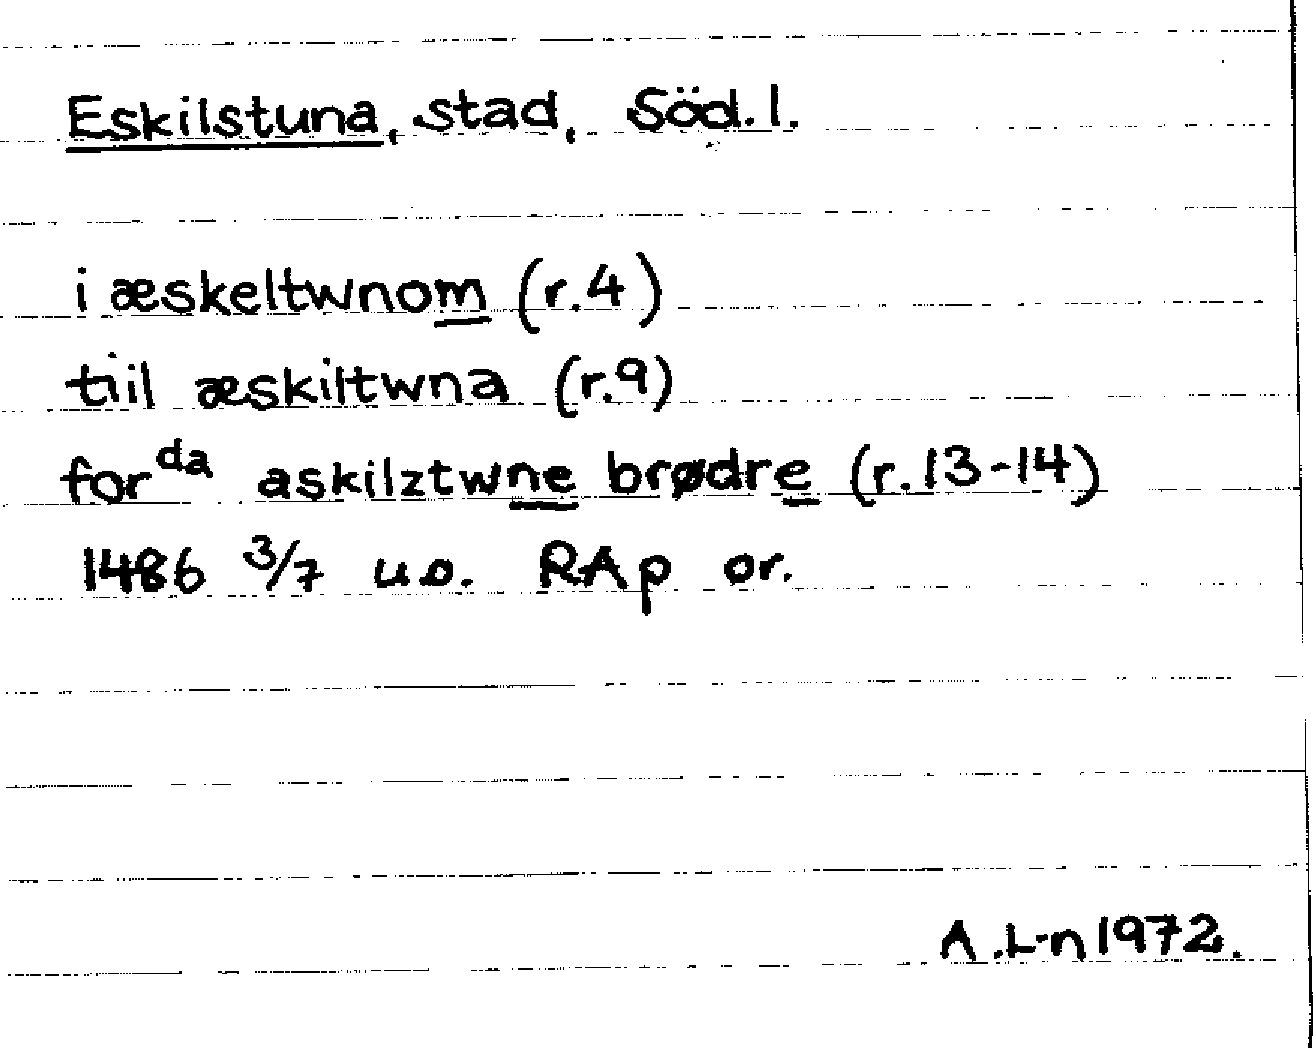 Eskilstuna, stad, Söd. l.
i æskeltwnom (r. 4)
tiil æskiltwna (r. 9)
for da askilztwne brødre (r. 13-14)
1486 3/7 u.o. RAp or.
A. L-n 1972.